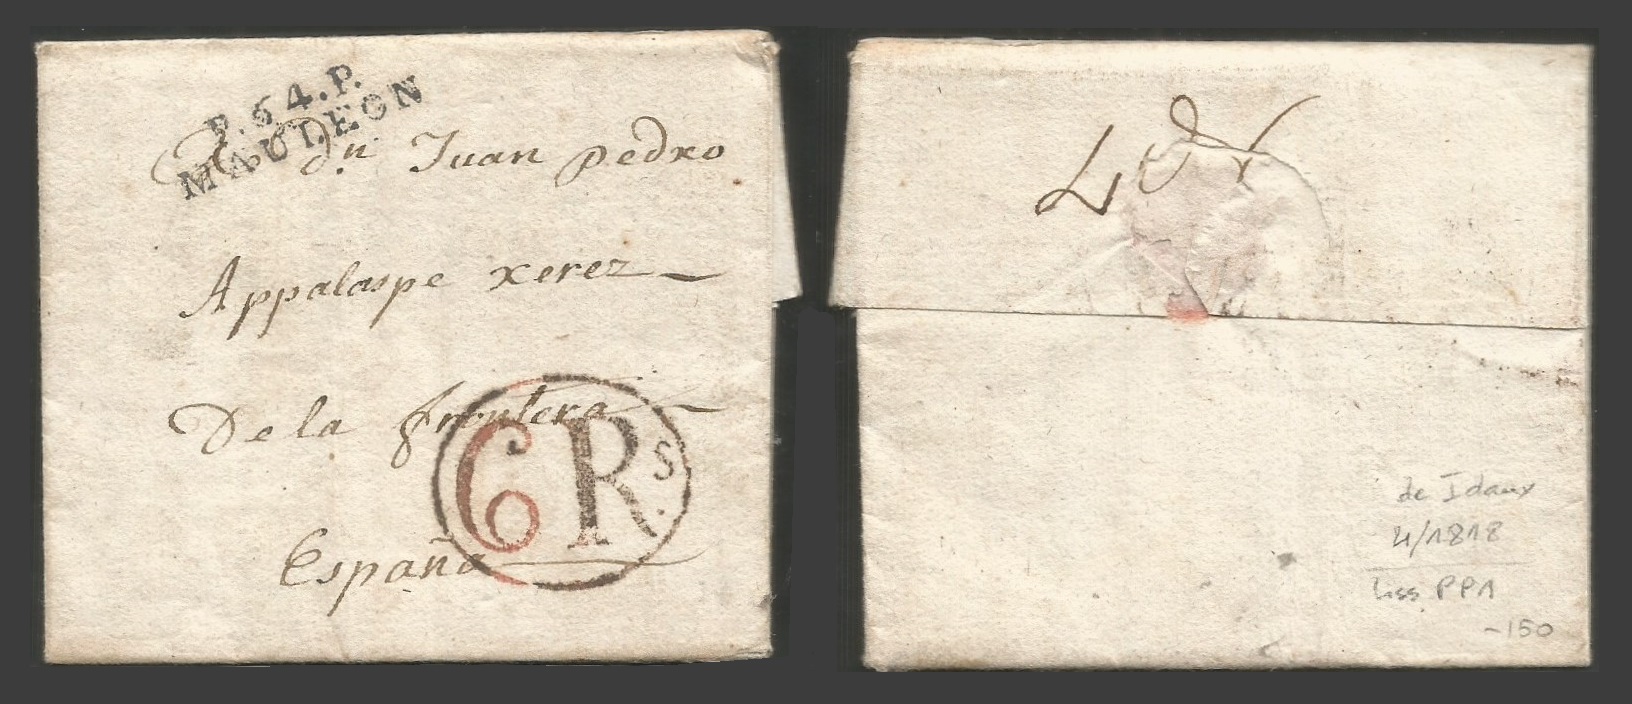 P.64.P.
MAULEON
Dn Juan Pedro
Appalaspe xerez
De la frontera
España
6 Rs.
de Idaux
4/1818
PP1
-150